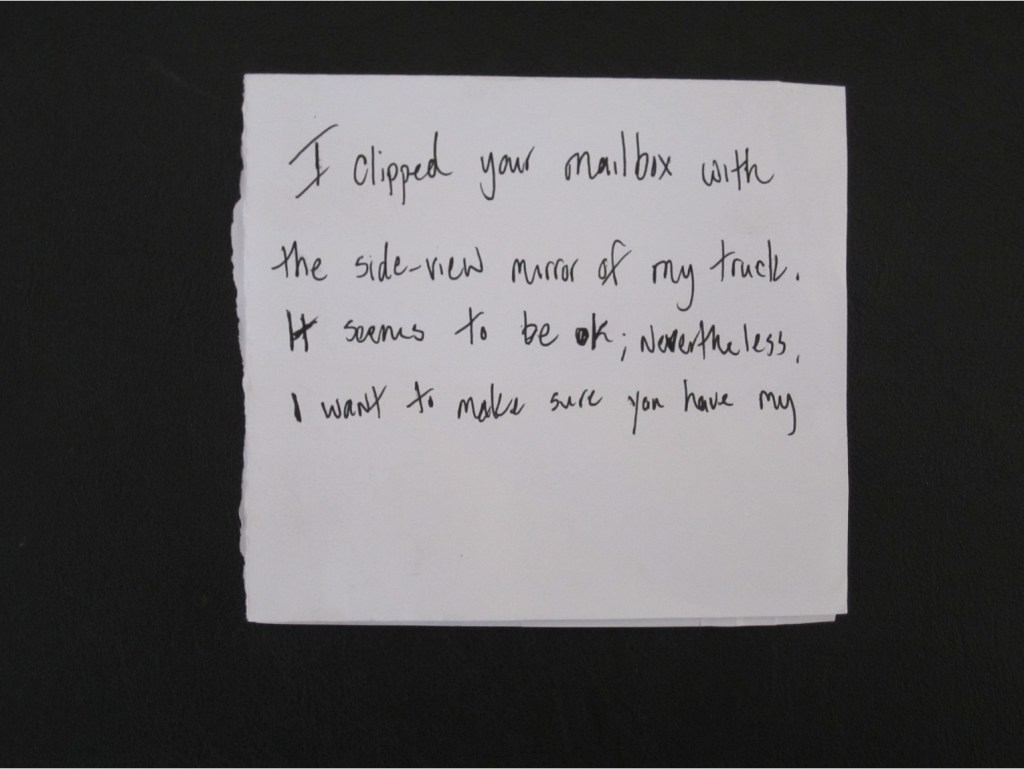 I clipped your mailbox with
the side-view mirror of my truck.
It seems to be ok; Nevertheless,
I want to make sure you have my